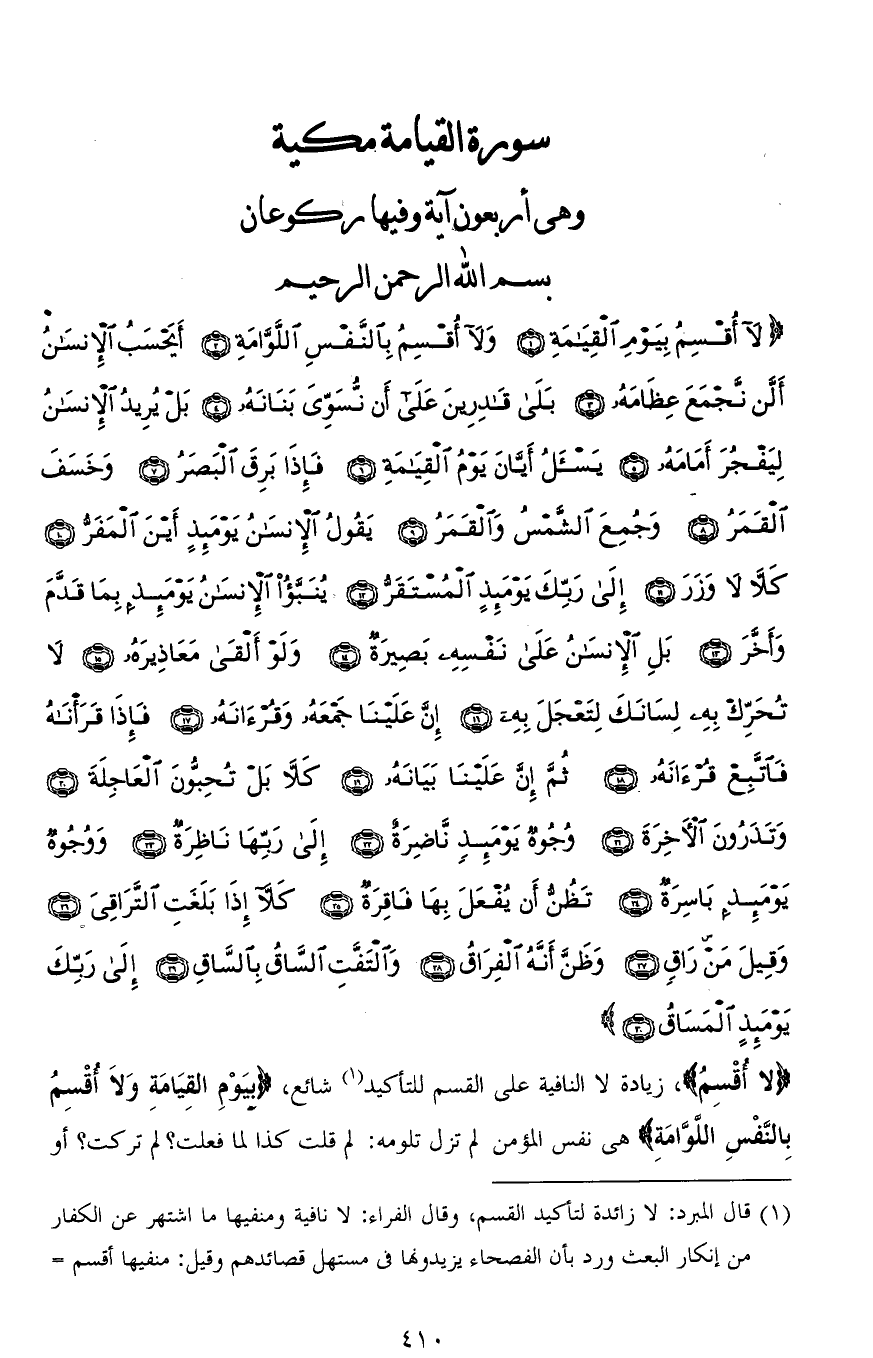 سورة القيامة مكية
وهى أربعون آية وفيها ركوعان
بسم الله الرحمن الرحيم
﴿لَآ أُقْسِمُ بِيَوْمِ ٱلْقِيَٰمَةِ ١ وَلَآ أُقْسِمُ بِٱلنَّفْسِ ٱللَّوَّامَةِ ٢ أَيَحْسَبُ ٱلْإِنسَٰنُ
أَلَّن نَّجْمَعَ عِظَامَهُۥ ٣ بَلَىٰ قَٰدِرِينَ عَلَىٰٓ أَن نُّسَوِّىَ بَنَانَهُۥ ٤ بَلْ يُرِيدُ ٱلْإِنسَٰنُ
لِيَفْجُرَ أَمَامَهُۥ ٥ يَسْـَٔلُ أَيَّانَ يَوْمُ ٱلْقِيَٰمَةِ ٦ فَإِذَا بَرِقَ ٱلْبَصَرُ ٧ وَخَسَفَ
ٱلْقَمَرُ ٨ وَجُمِعَ ٱلشَّمْسُ وَٱلْقَمَرُ ٩ يَقُولُ ٱلْإِنسَٰنُ يَوْمَئِذٍ أَيْنَ ٱلْمَفَرُّ ١٠
كَلَّا لَا وَزَرَ ١١ إِلَىٰ رَبِّكَ يَوْمَئِذٍ ٱلْمُسْتَقَرُّ ١٢ يُنَبَّؤُا۟ ٱلْإِنسَٰنُ يَوْمَئِذٍۭ بِمَا قَدَّمَ
وَأَخَّرَ ١٣ بَلِ ٱلْإِنسَٰنُ عَلَىٰ نَفْسِهِۦ بَصِيرَةٌ ١٤ وَلَوْ أَلْقَىٰ مَعَاذِيرَهُۥ ١٥ لَا
تُحَرِّكْ بِهِۦ لِسَانَكَ لِتَعْجَلَ بِهِۦٓ ١٦ إِنَّ عَلَيْنَا جَمْعَهُۥ وَقُرْءَانَهُۥ ١٧ فَإِذَا قَرَأْنَٰهُ
فَٱتَّبِعْ قُرْءَانَهُۥ ١٨ ثُمَّ إِنَّ عَلَيْنَا بَيَانَهُۥ ١٩ كَلَّا بَلْ تُحِبُّونَ ٱلْعَاجِلَةَ ٢٠
وَتَذَرُونَ ٱلْأَخِرَةَ ٢١ وُجُوهٌ يَوْمَئِذٍ نَّاضِرَةٌ ٢٢ إِلَىٰ رَبِّهَا نَاظِرَةٌ ٢٣ وَوُجُوهٌ
يَوْمَئِذٍۭ بَاسِرَةٌ ٢٤ تَظُنُّ أَن يُفْعَلَ بِهَا فَاقِرَةٌ ٢٥ كَلَّآ إِذَا بَلَغَتِ ٱلتَّرَاقِىَ ٢٦
وَقِيلَ مَنْ رَاقٍ ٢٧ وَظَنَّ أَنَّهُ ٱلْفِرَاقُ ٢٨ وَٱلْتَفَّتِ ٱلسَّاقُ بِٱلسَّاقِ ٢٩ إِلَىٰ رَبِّكَ
يَوْمَئِذٍ ٱلْمَسَاقُ ٣٠﴾
﴿لا أُقْسِمُ﴾، زيادة لا النافية على القسم للتأكيد(١) شائع، ﴿بِيَوْمِ القِيَامَةِ وَلاَ أُقْسِمُ
بِالنَّفْسِ اللَّوَّامَةِ﴾ هى نفس المؤمن لم تزل تلومه: لم قلت كذا لما فعلت؟ لم تركت؟ أو
(١) قال المبرد: لا زائدة لتأكيد القسم، وقال الفراء: لا نافية ومنفيها ما اشتهر عن الكفار
من إنكار البعث ورد بأن الفصحاء يزيدونها فى مستهل قصائدهم وقيل: منفيها أقسم =
٤١٠